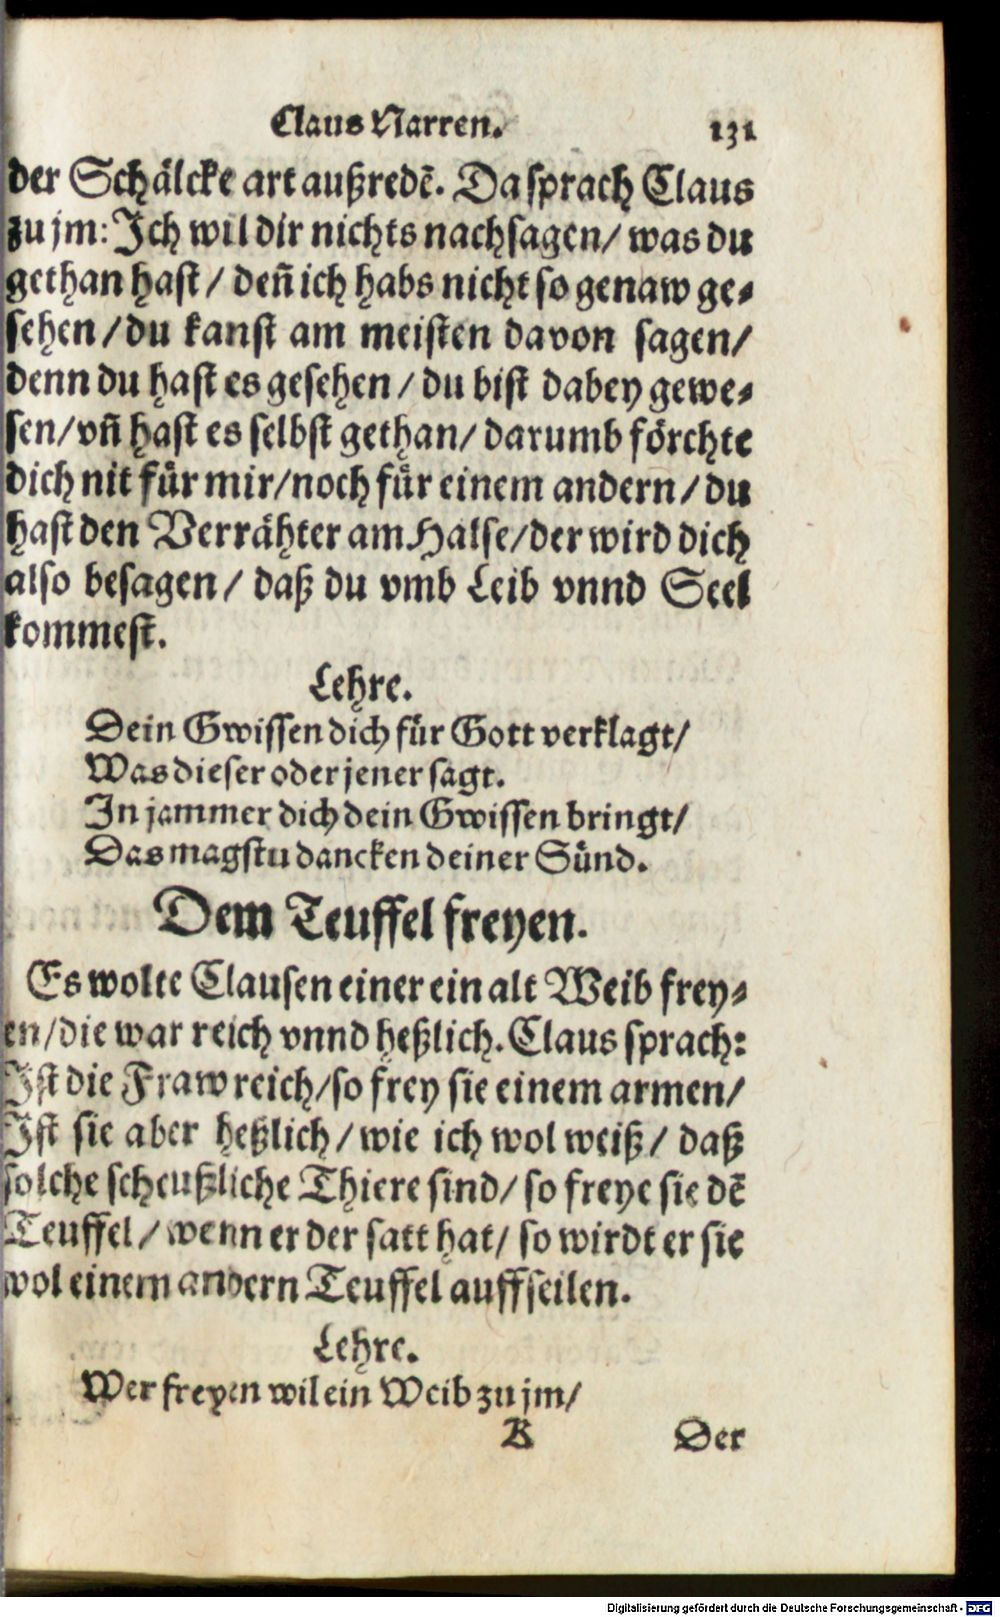 Claus Narren. 131
der Schälcke art außredē. Da sprach Claus
zu jm: Ich wil dir nichts nachsagen/ was du
gethan hast/ deñ ich habs nicht so genaw ge-
sehen/ du kanst am meisten davon sagen/
denn du hast es gesehen/ du bist dabey gewe-
sen/ vñ hast es selbst gethan/ darumb förchte
dich nit für mir/ noch für einem andern/ du
hast den Verrähter am Halse/ der wird dich
also besagen/ daß du vmb Leib vnnd Seel
kommest.
Lehre.
Dein Gwissen dich für Gott verklagt/
Was dieser oder jener sagt.
In jammer dich dein Gwissen bringt/
Das magstu dancken deiner Sünd.
Dem Teuffel freyen.
Es wolte Clausen einer ein alt Weib frey-
en/ die war reich vnnd heßlich. Claus sprach:
Ist die Fraw reich/ so frey sie einem armen/
Ist sie aber heßlich/ wie ich wol weiß/ daß
solche scheußliche Thiere sind/ so freye sie dē
Teuffel/ wenn er der satt hat/ so wirdt er sie
wol einem andern Teuffel auffseilen.
Lehre.
Wer freyen wil ein Weib zu jm/
K Der
Digitalisierung gefördert durch die Deutsche Forschungsgemeinschaft - DFG